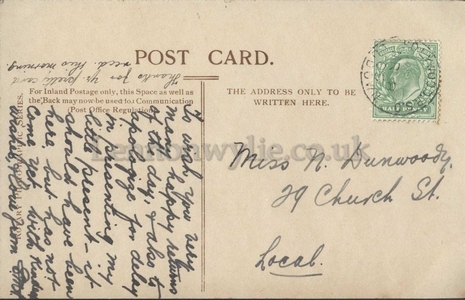 POST CARD.
For Inland Postage only, this Space as well as
the Back may now be used to Communication
(Post Office Regulation).
THE ADDRESS ONLY TO BE
WRITTEN HERE.
Lennonwylie.co.uk
To wish you very
many happy returns
of the day, & also to
apologize for delay
in presenting my
little present it
should have been
here, but has not
come yet with
wishes from
Thanks for yr pretty card
recd. this morning
Miss N. Dunwoody,
29 Church St.
Local.